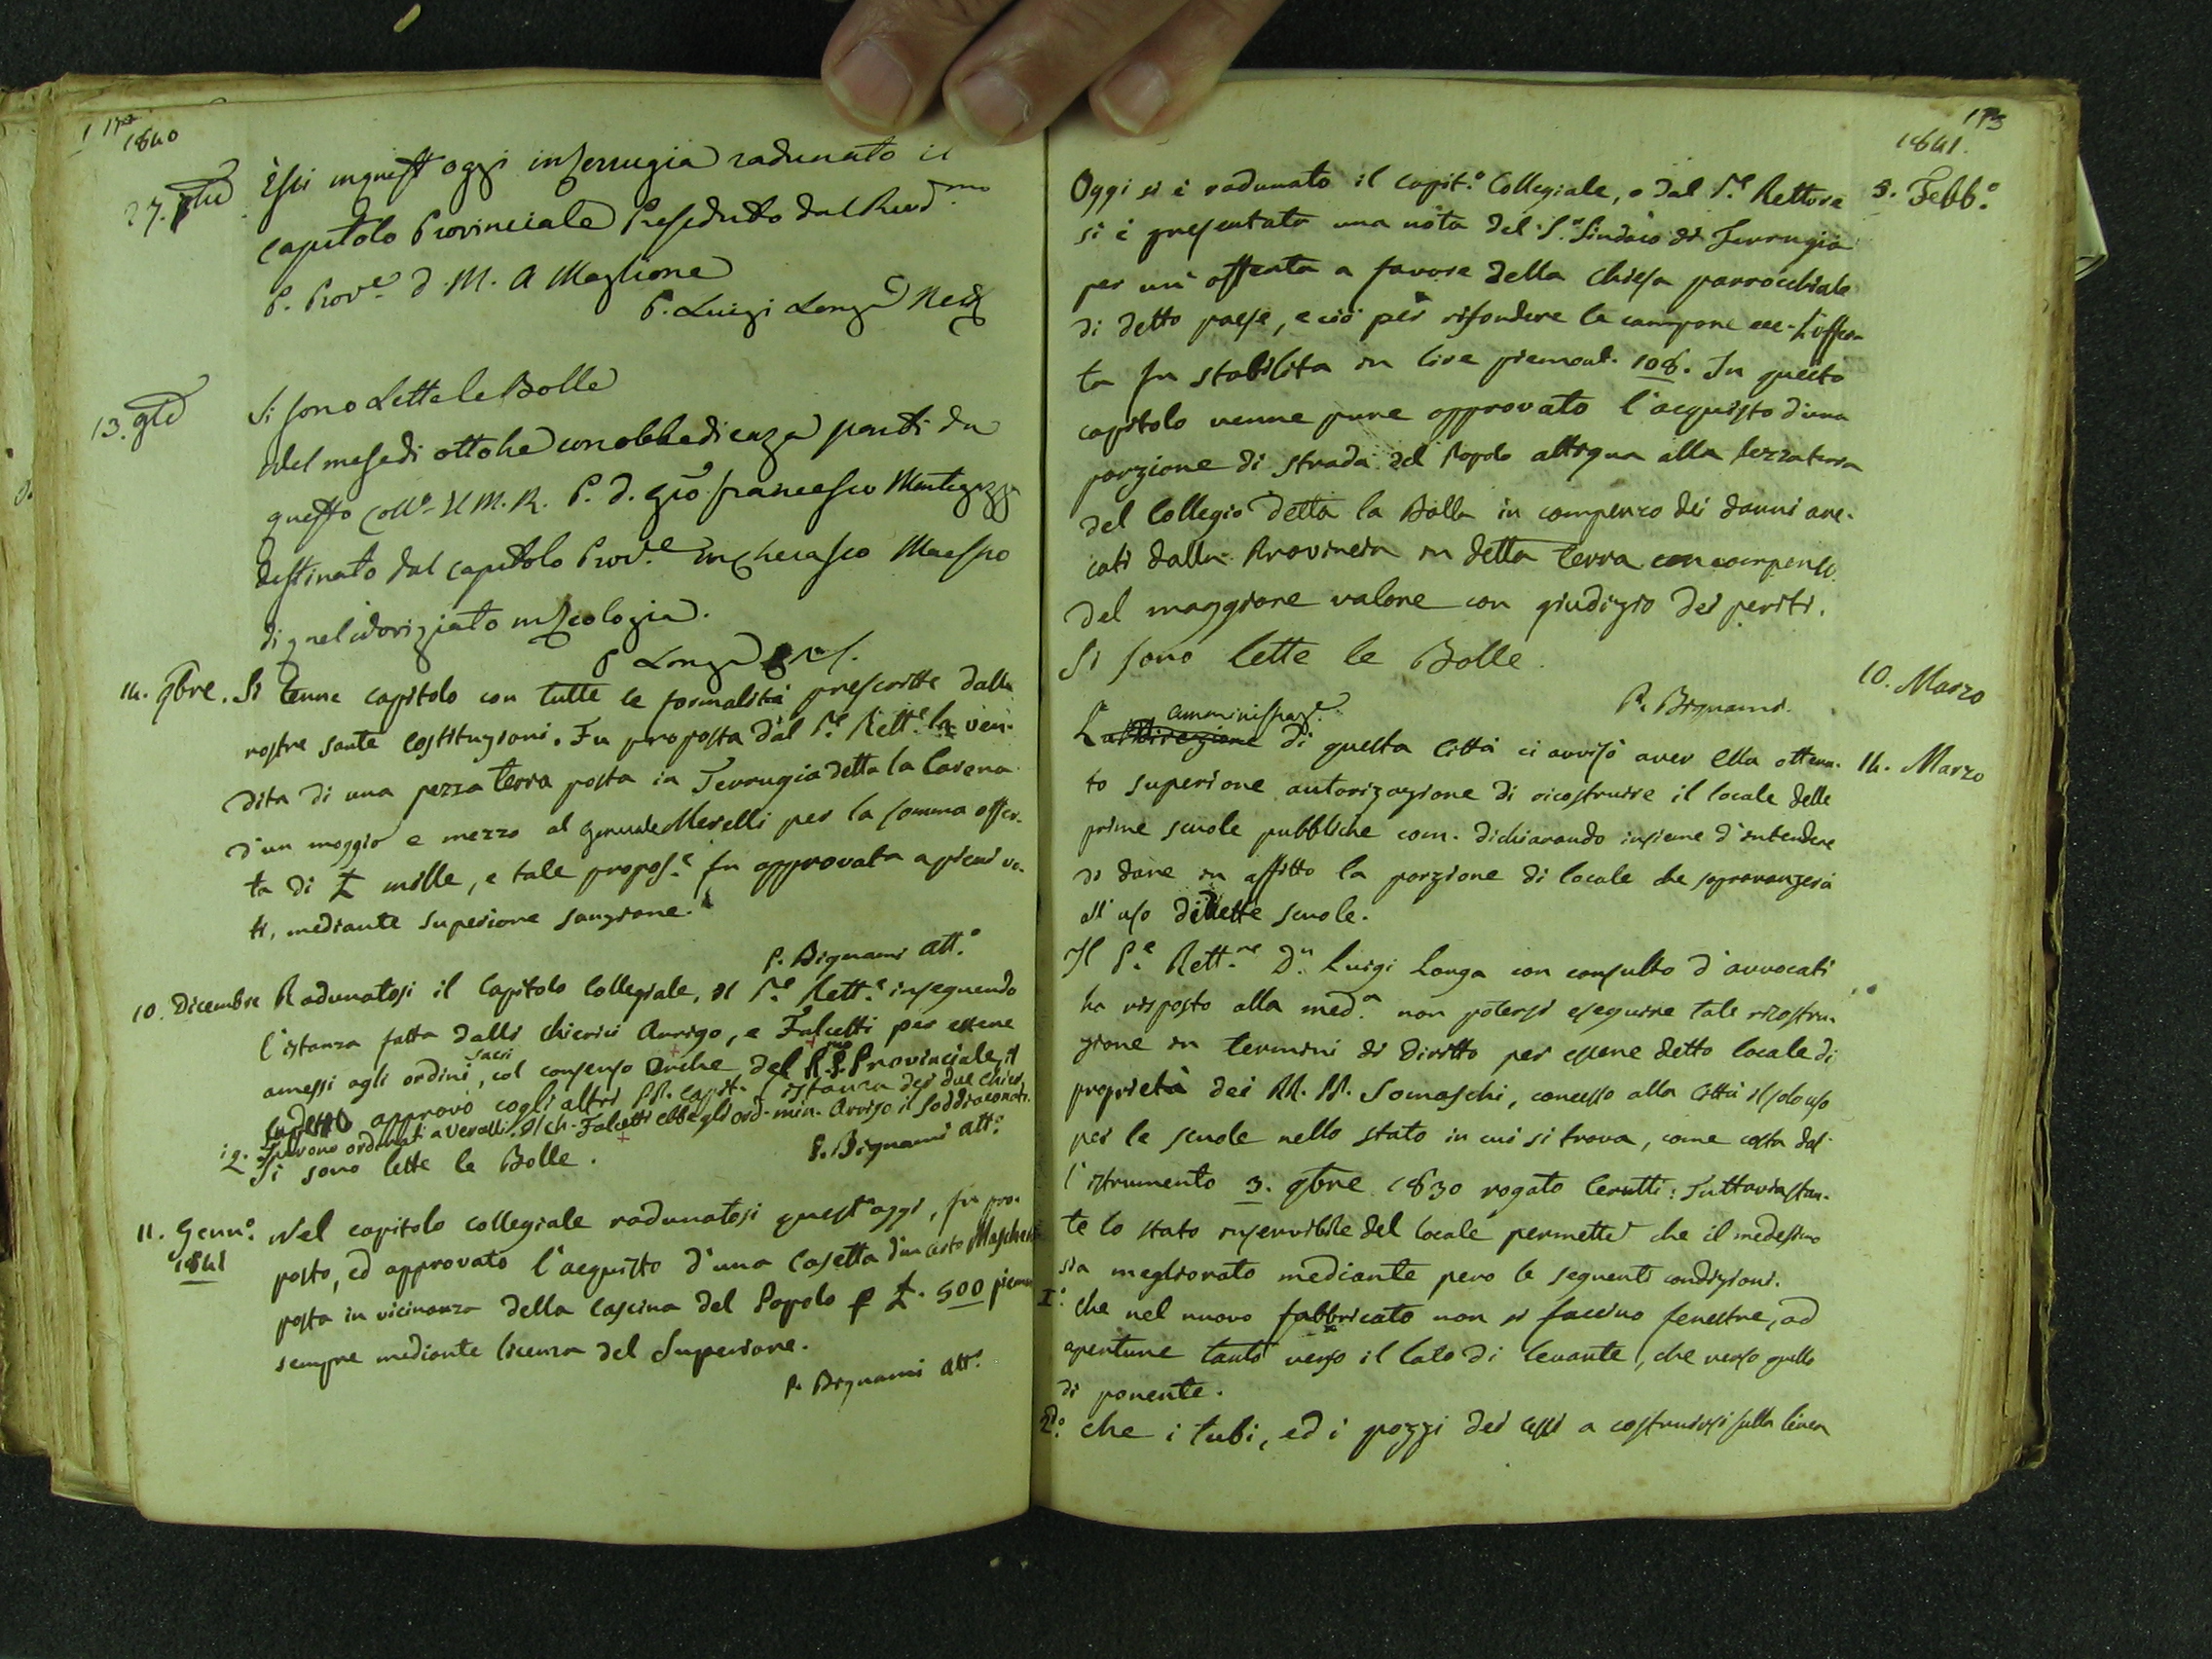 172
1840
27. 7bre Essi in quest'oggi in Terrugia radunato il
capitolo Provinciale Preseduto dal Revd.mo
P. Prov.e D. M. A Maglione
P. Luigi Longa Rett
13. 9bre Si sono Lette le Bolle
Nel mese di ottobre con obbedienza partì da
questo Coll.o Il M. R. P. D. Gio Francesco Mantegazza
destinato dal capitolo Prov.e in Cherasco Maestro
di quel in Teologia.
P. Longa
14. 9bre. Si tenne capitolo con tutte le formalità prescritte dalle
nostre sante Costituzioni. Fu proposta dal P.e Rett.e la ven-
dita di una pezza terra posta in Terrugia detta la Carena
d'un moggio e mezzo al Merelli per la somma offer-
ta di £ mille, e tale propos.e fu approvata a pieni vo-
ti, mediante superiore sanzione.
P. Bignami att.o
10. Dicembre Radunatosi il Capitolo Collegiale, il P.e Rett.e inseguendo
l'istanza fatta dalli chierici Arrigo, e Falcetti per essere
amessi agli ordini sacri, col consenso anche del R.mo P. Provinciale, il
sudetto approvò cogli altri PP. Capit. l'istanza dei due chier.
19. Furono ordinati a Vercelli. Il Ch. Falcetti ebbe gli ord. min. Arrigo il Soddiaconato.
Si sono lette le Bolle.
P. Bignami att.o
11. Genn.o Nel capitolo collegiale radunatosi quest'oggi, fu pro-
1841 posto, ed approvato l'acquisto d'una Casetta d'un certo
posta in vicinanza della Cascina del Popolo p £. 500 piem
sempre mediante licenza del Superiore.
P. Bignami att.o
173
1841.
Oggi si è radunato il capit.o Collegiale, e dal P.e Rettore 5. Febb.o
si è presentata una nota del S.r Sindaco di Terrugia
per un'offerta a favore della Chiesa parrocchiale
di detto paese, e ciò per rifondere le campane ecc. L'offer-
ta fu stabilita in lire piemont. 108. In questo
capitolo venne pure approvato l'acquisto d'una
porzione di strada del Popolo attigua alla pezza terra
del Collegio detta la Balla in compenso dei danni are-
cati dalla Provincia in detta terra con compenso
del maggiore valore con giudizio dei periti.
Si sono lette le Bolle. 10. Marzo
P. Bignami.
amministraz.e
L' di questa Città ci avvisò aver Ella ottenu- 14. Marzo
to superiore autorizazione di ricostruire il locale delle
prime scuole pubbliche com. dichiarando insieme d'intendere
di dare in affitto la porzione di locale che sopravanzerà
all'uso di dette scuole.
Il P.e Rett.re Dn. Luigi Longa con consulto d'avvocati
ha risposto alla med.a non potersi eseguire tale ricostru-
zione in termini di diritto per essere detto locale di
proprietà dei RR. PP. Somaschi, concesso alla Città il solo uso
per le scuole nello stato in cui si trova, come costa dal-
l'istrumento 3. 9bre 1830 rogato Cerutti: Tuttavia stan-
te lo stato inservibile del locale permette che il medesimo
sia megliorato mediante però le seguenti condizioni.
I.o Che nel nuovo fabbricato non si faccino fenestre, od
aperture tanto verso il lato di levante, che verso quello
di ponente.
2.do Che i tubi, ed i pozzi dei cessi a costruirsi sulla linea